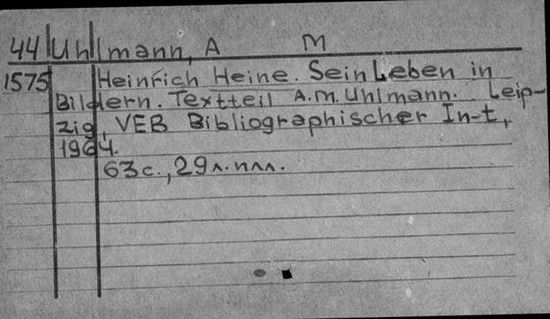 44 Uhlmann, A M
1575 Heinrich Heine. Sein Leben in
Bildern. Textteil A.M. Uhlmann. Leip-
zig, VEB Bibliographischer In-t,
1964.
63 с., 29 л. илл.